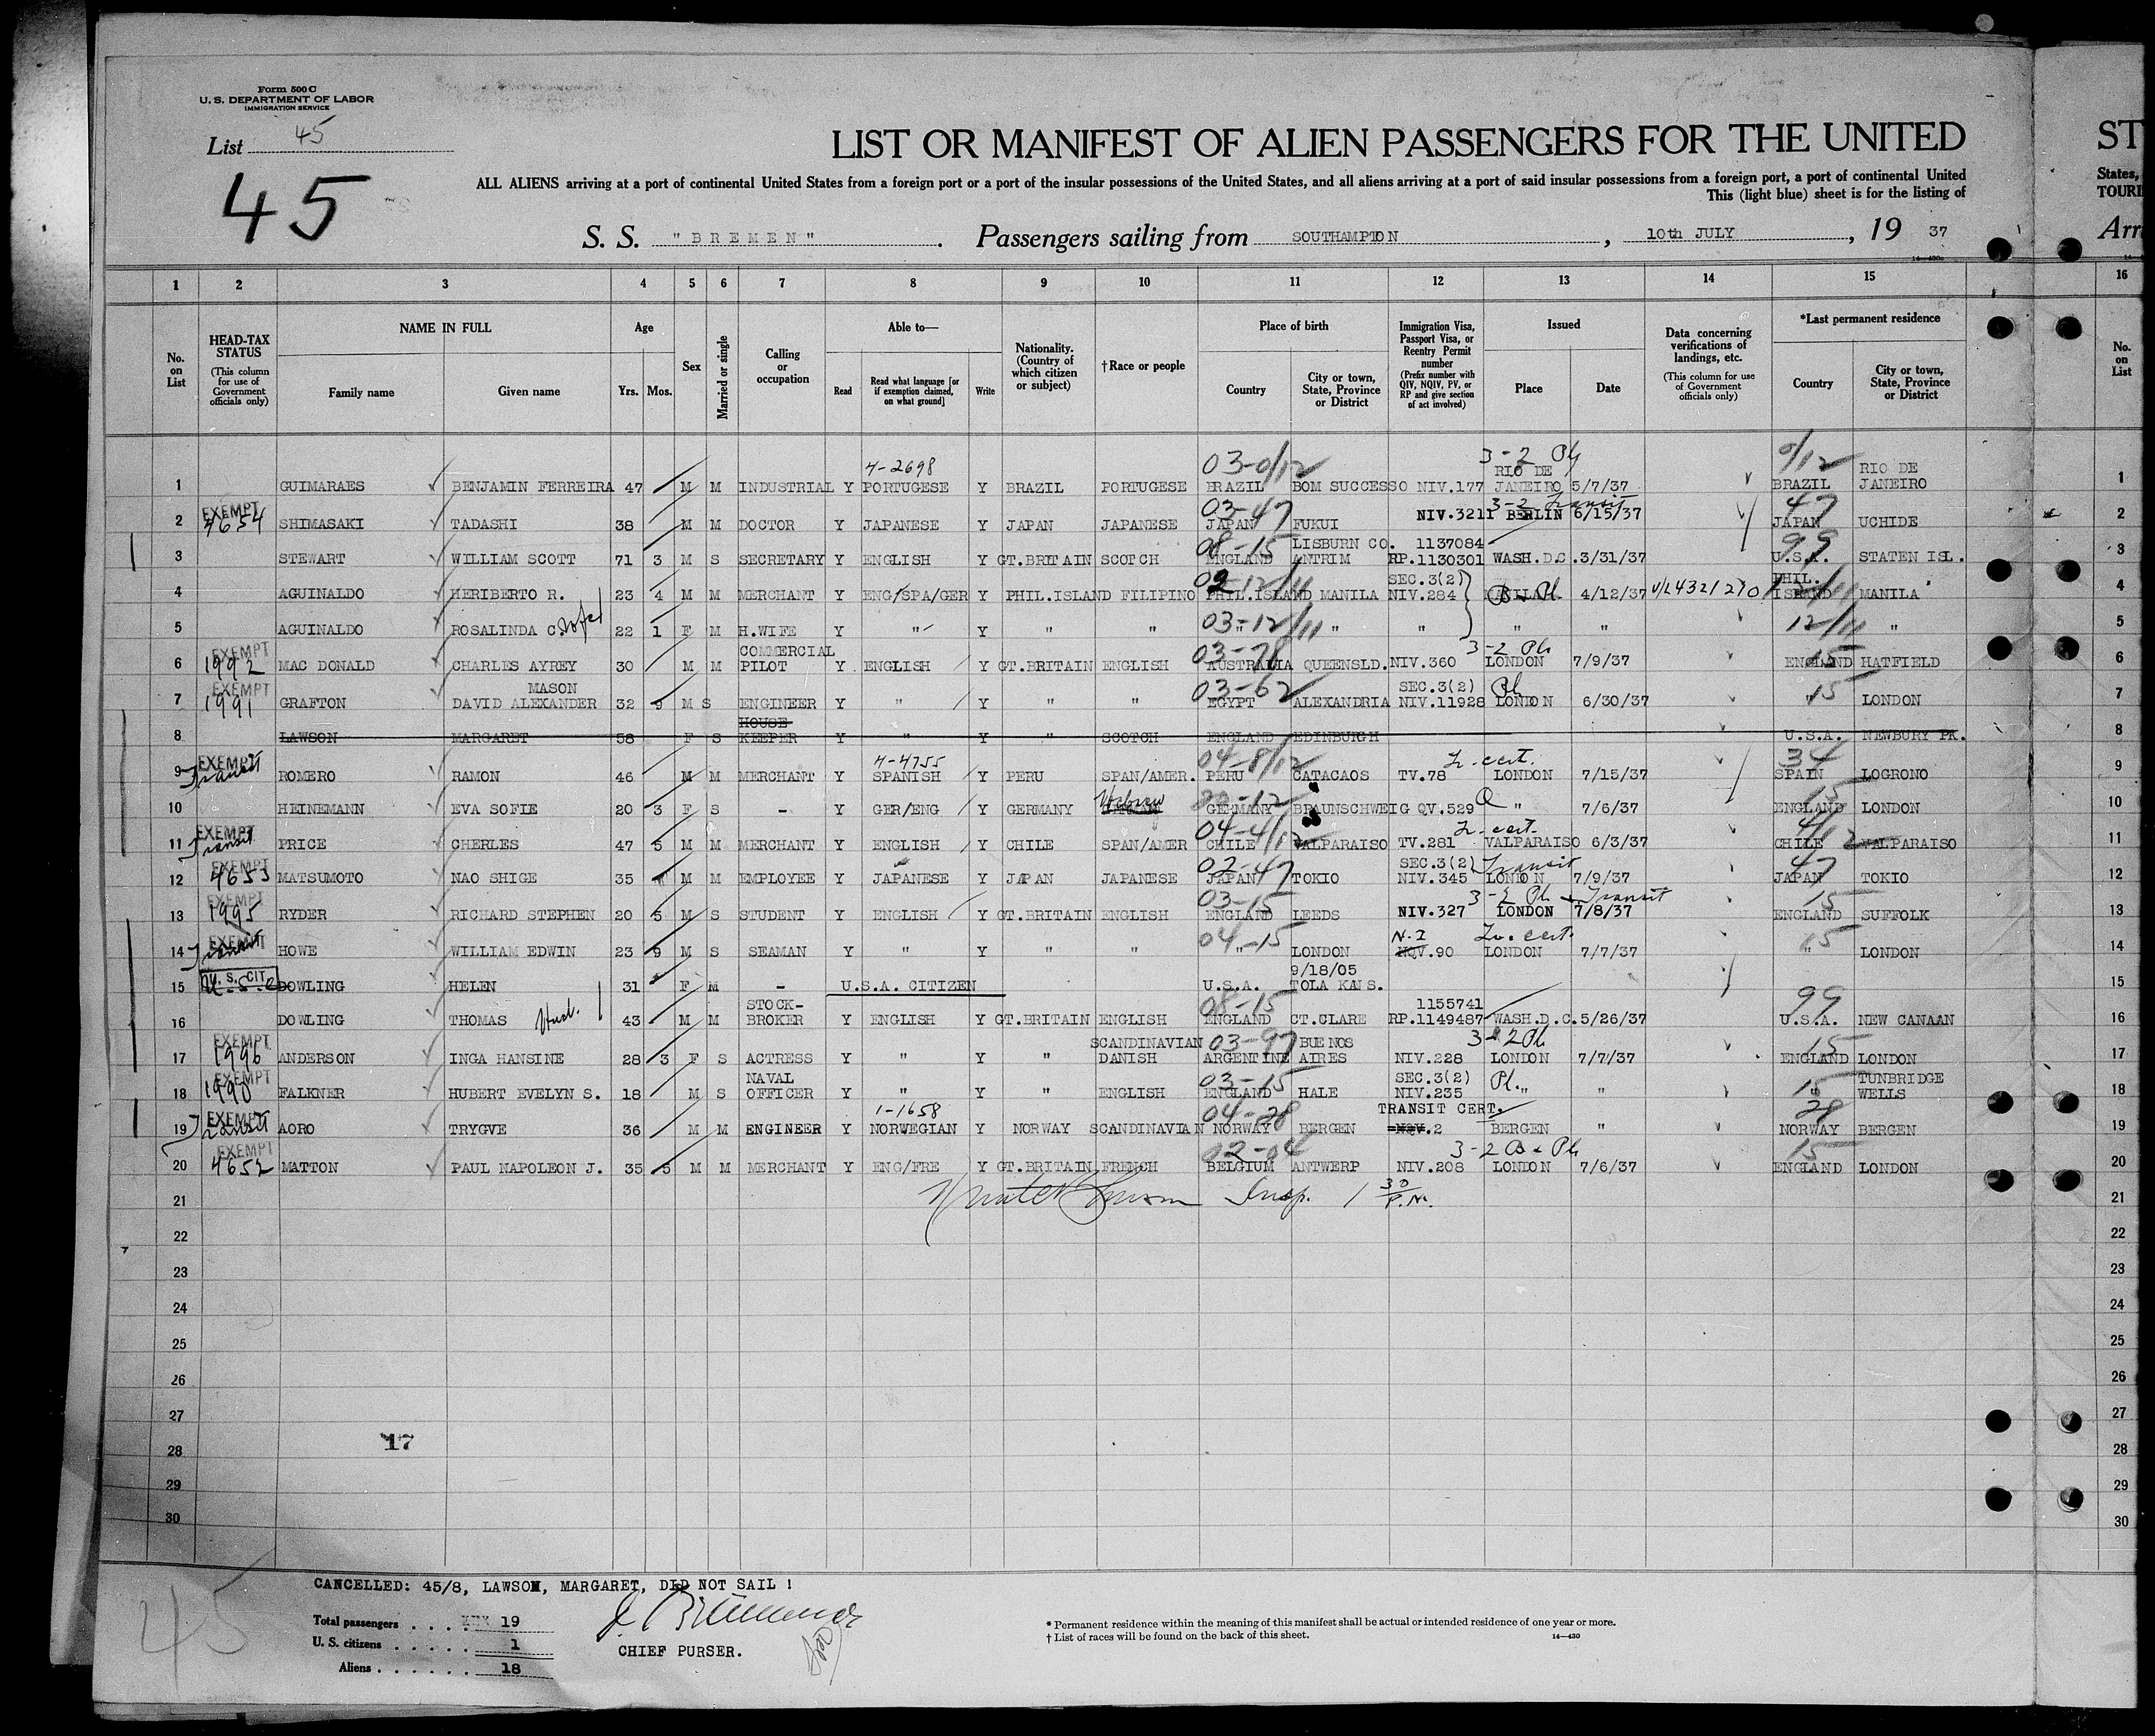 Form 500 C
U. S. DEPARTMENT OF LABOR
IMMIGRATION SERVICE
List 45
45
LIST OR MANIFEST OF ALIEN PASSENGERS FOR THE UNITED ST
ALL ALIENS arriving at a port of continental United States from a foreign port or a port of the insular possessions of the United States, and all aliens arriving at a port of said insular possessions from a foreign port, a port of continental United States,
This (light blue) sheet is for the listing of TOURI
S. S. "BREMEN". Passengers sailing from SOUTHAMPTON, 10th JULY, 19 37 Arr
1 2 3 4 5 6 7 8 9 10 11 12 13 14 15 16
No. on List
HEAD-TAX STATUS (This column for use of Government officials only)
NAME IN FULL Family name Given name
Age Yrs. Mos.
Sex
Married or single
Calling or occupation
Able to— Read Read what language [or if exemption claimed, on what ground] Write
Nationality. (Country of which citizen or subject)
†Race or people
Place of birth Country City or town, State, Province or District
Immigration Visa, Passport Visa, or Reentry Permit number (Prefix number with QIV, NQIV, PV, or RP and give section of act involved)
Issued Place Date
Data concerning verifications of landings, etc. (This column for use of Government officials only)
*Last permanent residence Country City or town, State, Province or District
No. on List
4-2698 03-0/12 3-2 Pl 0/12
1 GUIMARAES BENJAMIN FERREIRA 47 M M INDUSTRIAL Y PORTUGESE Y BRAZIL PORTUGESE BRAZIL BOM SUCCESSO NIV.177 RIO DE JANEIRO 5/7/37 BRAZIL RIO DE JANEIRO 1
EXEMPT 4654 03-47 3-2 Transit 47
2 SHIMASAKI TADASHI 38 M M DOCTOR Y JAPANESE Y JAPAN JAPANESE JAPAN FUKUI NIV.3211 BERLIN 6/15/37 JAPAN UCHIDE 2
08-15 LISBURN CO. 1137084 99
3 STEWART WILLIAM SCOTT 71 3 M S SECRETARY Y ENGLISH Y GT.BRITAIN SCOTCH ENGLAND ANTRIM RP.1130301 WASH.D.C. 3/31/37 U.S.A. STATEN ISL. 3
SEC.3(2)
4 AGUINALDO HERIBERTO R. 23 4 M M MERCHANT Y ENG/SPA/GER Y PHIL.ISLAND FILIPINO PHIL.ISLAND MANILA NIV.284 MANILA 4/12/37 PHIL. ISLAND MANILA 4
03-12/11 12/11
5 AGUINALDO ROSALINDA C. 22 1 F M H.WIFE Y " Y " " " " " " " " 5
EXEMPT 1992 03-78 3-2 Pl 15
6 MAC DONALD CHARLES AYREY 30 M M COMMERCIAL PILOT Y ENGLISH Y GT.BRITAIN ENGLISH AUSTRALIA QUEENSLD. NIV.360 LONDON 7/9/37 ENGLAND HATFIELD 6
EXEMPT 1991 03-62 SEC.3(2) Pl 15
7 GRAFTON DAVID ALEXANDER MASON 32 9 M S ENGINEER Y " Y " " EGYPT ALEXANDRIA NIV.11928 LONDON 6/30/37 " LONDON 7
8 LAWSON MARGARET 58 F S HOUSE KEEPER Y " Y " SCOTCH ENGLAND EDINBURGH U.S.A. NEWBURY PK. 8
EXEMPT Transit 4-4755 04-8/12 Tr. cert. 34
9 ROMERO RAMON 46 M M MERCHANT Y SPANISH Y PERU SPAN/AMER. PERU CATACAOS TV.78 LONDON 7/15/37 SPAIN LOGRONO 9
Hebrew Q 15
10 HEINEMANN EVA SOFIE 20 3 F S - Y GER/ENG Y GERMANY GERMANY BRAUNSCHWEIG QV.529 " 7/6/37 ENGLAND LONDON 10
EXEMPT Transit 04-4/12 Tr. cert. 4/12
11 PRICE CHERLES 47 5 M M MERCHANT Y ENGLISH Y CHILE SPAN/AMER CHILE VALPARAISO TV.281 VALPARAISO 6/3/37 CHILE VALPARAISO 11
EXEMPT 4653 02-47 SEC.3(2) Transit 47
12 MATSUMOTO NAO SHIGE 35 M M EMPLOYEE Y JAPANESE Y JAPAN JAPANESE JAPAN TOKIO NIV.345 LONDON 7/9/37 JAPAN TOKIO 12
EXEMPT 1995 03-15 3-2 Pl & Transit 15
13 RYDER RICHARD STEPHEN 20 5 M S STUDENT Y ENGLISH Y GT.BRITAIN ENGLISH ENGLAND LEEDS NIV.327 LONDON 7/8/37 ENGLAND SUFFOLK 13
EXEMPT Transit 04-15 Tr. cert. 15
14 HOWE WILLIAM EDWIN 23 9 M S SEAMAN Y " Y " " " LONDON NQV.90 LONDON 7/7/37 " LONDON 14
U. S. CIT. 9/18/05
15 DOWLING HELEN 31 F M - U.S.A. CITIZEN U.S.A. TOLA KANS. 15
08-15 1155741 99
16 DOWLING THOMAS Husb. 43 M M STOCK-BROKER Y ENGLISH Y GT.BRITAIN ENGLISH ENGLAND CT.CLARE RP.1149487 WASH.D.C. 5/26/37 U.S.A. NEW CANAAN 16
EXEMPT 1996 03-97 3-2 Pl 15
17 ANDERSON INGA HANSINE 28 3 F S ACTRESS Y " Y " SCANDINAVIAN DANISH ARGENTINE BUENOS AIRES NIV.228 LONDON 7/7/37 ENGLAND LONDON 17
EXEMPT 1990 03-15 SEC.3(2) Pl. 15
18 FALKNER HUBERT EVELYN S. 18 M S NAVAL OFFICER Y " Y " ENGLISH ENGLAND HALE NIV.235 " " " TUNBRIDGE WELLS 18
EXEMPT Transit 1-1658 04-28 TRANSIT CERT. 28
19 AORO TRYGVE 36 M M ENGINEER Y NORWEGIAN Y NORWAY SCANDINAVIAN NORWAY BERGEN NQV.2 BERGEN " NORWAY BERGEN 19
EXEMPT 4652 02-04 3-2 B & Pl 15
20 MATTON PAUL NAPOLEON J. 35 5 M M MERCHANT Y ENG/FRE Y GT.BRITAIN FRENCH BELGIUM ANTWERP NIV.208 LONDON 7/6/37 ENGLAND LONDON 20
21 Insp. 1 30 P.M. 21
22 22
23 23
24 24
25 25
26 26
27 27
17
28 28
29 29
30 30
CANCELLED: 45/8, LAWSON, MARGARET, DID NOT SAIL !
45
Total passengers . . . . 19
U. S. citizens . . . . . 1
Aliens . . . . . . 18
CHIEF PURSER.
* Permanent residence within the meaning of this manifest shall be actual or intended residence of one year or more.
† List of races will be found on the back of this sheet.
14—430